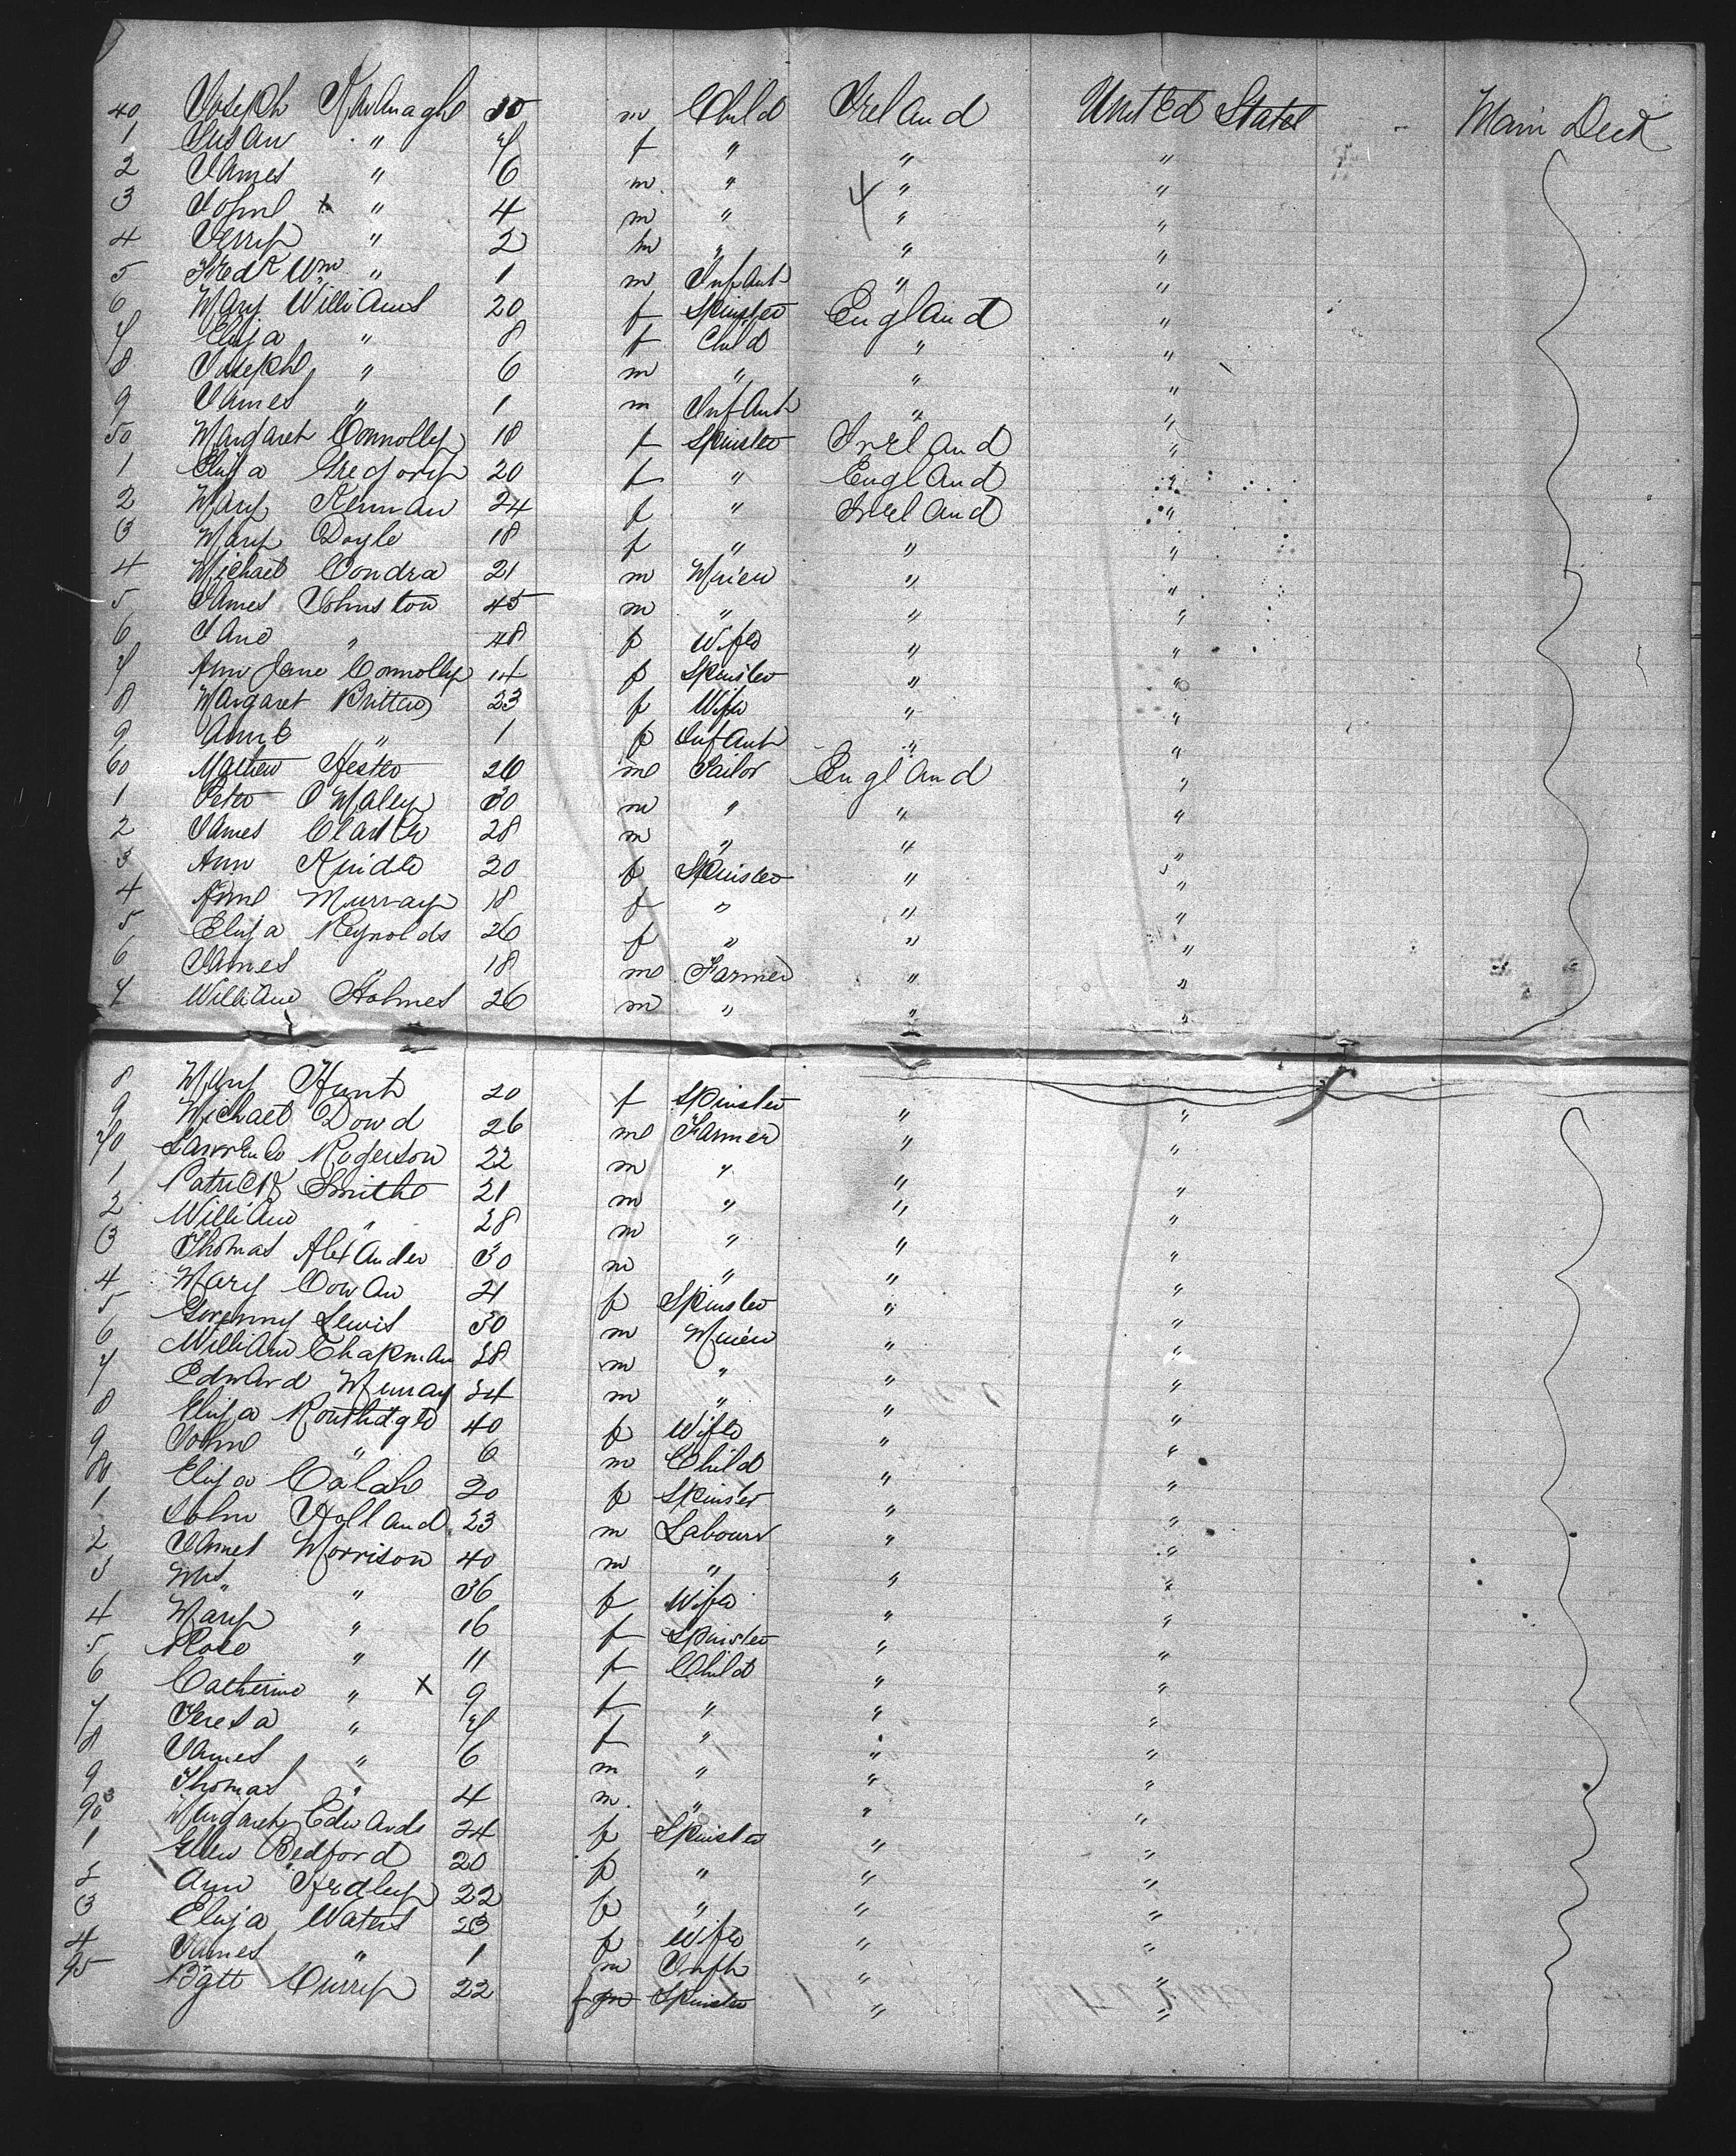 40 Joseph Kavanagh 10 m Child Ireland United States Main Deck
1 Susan " 7 f " " "
2 James " 6 m " " "
3 John x " 4 m " " "
4 Jerry " 2 m " " "
5 Fredk Wm " 1 m Infant " "
6 Mary Williams 20 f Spinster England "
7 Eliza " 8 f Child " "
8 Joseph " 6 m " " "
9 James " 1 m Infant " "
50 Margaret Connolly 18 f Spinster Ireland "
1 Eliza Gregory 20 f " England "
2 Mary Kernan 24 f " Ireland "
3 Mary Doyle 18 f " " "
4 Michael Condra 21 m Miner " "
5 James Johnston 45 m " " "
6 Jane " 48 f Wife " "
7 Ann Jane Connolly 14 f Spinster " "
8 Margaret Britten 23 f Wife " "
9 Anne " 1 f Infant " "
60 Mathew Hester 26 m Tailor England "
1 Peter O'Maley 30 m " " "
2 James 28 m " " "
3 Ann 20 f Spinster " "
4 Anne Murray 18 f " " "
5 Eliza Reynolds 26 f " " "
6 James " 18 m Farmer " "
7 William Holmes 26 m " " "
8 Mary Hunt 20 f Spinster " "
9 Michael Dowd 26 m Farmer " "
70 Lawrence Rogerson 22 m " " "
1 Patrick Smith 21 m " " "
2 William " 28 m " " "
3 Thomas Alexander 30 m " " "
4 Mary Cowan 21 f Spinster " "
5 Gwenny Lewis 30 m Miner " "
6 William Chapman 38 m " " "
7 Edward Murray 34 m " " "
8 Eliza Routhidge 40 f Wife " "
9 John " 6 m Child " "
80 Eliza 20 f Spinster " "
1 John Holland 23 m Labourer " "
2 James Morrison 40 m " " "
3 Mrs " 36 f Wife " "
4 Mary " 16 f Spinster " "
5 Rose " 11 f Child " "
6 Catherine " x 9 f " " "
7 Teresa " 7 f " " "
8 James " 6 m " " "
9 Thomas " 4 m " " "
90 Margaret Edwards 24 f Spinster " "
1 Ellen Bedford 20 f " " "
2 Ann Hedley 22 f " " "
3 Eliza Waters 23 f Wife " "
4 James " 1 m Inft " "
95 Bgtt Curry 22 f Spinster " "